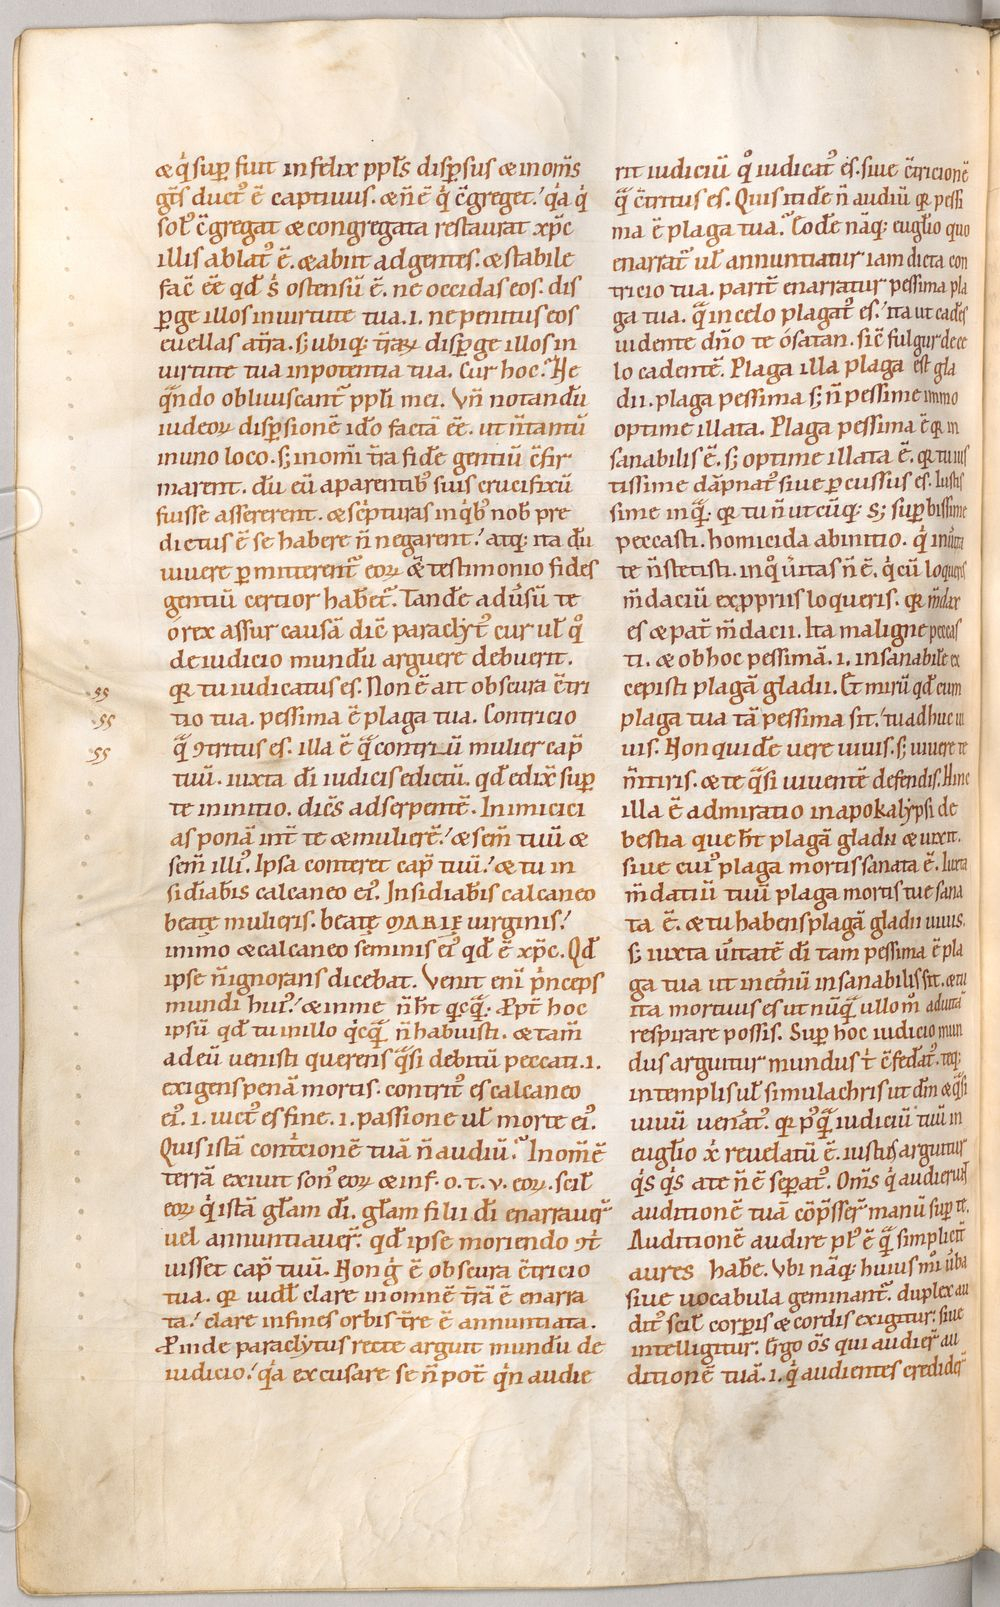 & q̇ sup fuit infelix ppl̅s disp̱sus & in om̅s
gt̅s duct᾽ ē captiuus. & n̄ ē q̇ c̄greget.᾽ q̇a q̇
sol᾽ c̄gregat & congregata restaurat xp̅c
illis ablat᾽ ē. & abiit ad gentes. & stabile
fac̄ ēē qd̅ s̓ ostensū ē. ne occidas eos. dis
p̱ge illos in uirtute tua. i. ne penitus eos
euellas a tr̅a. s; ubiq; tr̅aꝝ disp̱ge illos in
uirtute tua in potentia tua. Cur hoc.᾽ Ne
qn̅do obliuiscant᾽ ppl̅i mei. Vn̄ notandū
iudeoꝝ disp̱sionē id̅o factā ēē. ut n̄ tantū
in uno loco. s; in om̅i tr̅a fide̅ gentiū c̄fir
marent. dū eū a parentib᾽ suis crucifixū
fuisse assererent. & sc̅pturas in qb᾽ nob̅ pre
dictus ē se habere n̄ negarent.᾽ atq; ita dū
uiuere p̱mitterent᾽ eoꝝ & testimonio fides
gentiū certior hab&᾽. Tande̅ aduu̅sū te
o rex assur causā dic̄ paraclyt᾽ cur ul̅ qͦ
de iudicio mundū arguere debuerit.
qꝛ tu iudicatus es. Non ē ait obscura c̄tri
tio tua. pessima ē plaga tua. Contricio
q̅ ꝯtritus es. illa ē q̅ contriuū mulier cap̄
tuū. iuxta dī iudicis edictū. qd̅ edix̄ sup
te in initio. dicēs ad serpentē. Inimici
as ponā int̄ te & mulierē.᾽ & sem̄ tuū &
sem̄ illi᾽. Ipsa conteret cap̄ tuū.᾽ & tu in
sidiab̅is calcaneo ei᾽. Insidiab̅is calcaneo
beatę mulieris. beatę MARIE uirginis.᾽
immo & calcaneo seminis ei᾽ qd̅ ē xp̅c. Qd̅
ipse n̄ ignorans dicebat. Venit eni̅ p̓nceps
mundi hui᾽.᾽ & in me n̄ ht̅ qcq̅; Ppt̄ hoc
ipsū qd̅ tu in illo qcq̅ n̄ habuisti. & tam̄
ad eū uenisti querens q̅si debitū peccati. i.
exigens penā mortis. contrit᾽ es calcaneo
ei᾽. i. uict᾽ es fine. i. passione ul̅ morte ei᾽.
Quis istā contricionē tuā n̄ audiū.᾽ In om̅ē
terrā exiuit son᾽ eoꝝ & inf. o. t. v. eoꝝ. scil̅
eoꝝ q̓ istā gl̅am dī. gl̅am filii dī enarrauer̄
uel annuntiauer̄. qd̅ ipse moriendo ꝯt̓
uisset cap̄ tuū. Non g̓ ē obscura c̄tricio
tua. qꝛ uidl̅ clare in omnē tr̅ā ē enarra
ta.᾽ clare in fines orbis tr̅e ē annuntiata.
Proinde paraclytus recte arguit mundū de
iudicio.᾽ q̇a excusare se n̄ pot̄ q̓n audie
rit iudiciū qͦ iudicat᾽ es. siue c̄tricionē
q̅ c̄tritus es. Quis itide̅ n̄ audiū qꝛ pessi
ma ē plaga tua.᾽ Eode̅ nāq; eugl̅io quo
enarrat̄ ul̅ annuntiatur iam dicta con
tricio tua. parit̄ enarratur pessima pla
ga tua. q̅ in celo plagat᾽ es.᾽ ita ut cad̅es
uidente dn̅o te o satan. sic̄ fulgur de ce
lo cadentē. Plaga illa plaga est gla
dii. plaga pessima s; n̄ pessime immo
optime illata. Plaga pessima ē qꝛ in
sanabilis ē. s; optime illata ē. qꝛ tu ius
tissime dāpnat᾽ siue p̱cussus es. Iustis
sime inq̅; qꝛ tu n̄ utcūq; s; sup̱bissime
peccasti. homicida ab initio. q̇ in uita
te n̄ stetisti. in qͦ uitas n̄ ē. q̇ cū loqueris
m̅daciū ex p̱priis loqueris. qꝛ m̅dax
es & pat̄ m̅dacii. Ita maligne peccas
ti. & ob hoc pessimā. i. insanabile̅ ex
cepisti plagā gladii. Et mirū qd̅ cum
plaga tua tā pessima sit.᾽ tu adhuc ui
uis. Non quide̅ uere uiuis. s; uiuere te
m̅tiris. & te q̅si uiuentē defendis. Hinc
illa ē admiratio in apokalypsi de
bestia que ht̅ plagā gladii & uixit.
siue cui᾽ plaga mortis sanata ē. Iuxta
m̅datiū tuū plaga mortis tue sana
ta ē. & tu habens plagā gladii uiuis.
s; iuxta uitatē dī tam pessima ē pla
ga tua ut in et̅nū insanabilis sit. & tu
ita mortuus es ut nūq̅ ullom̅ ad uitā
respirare possis. Sup hoc iudicio mun
dus arguitur mundus t̓ c̄fed̅at᾽. teq;
in templis ul̅ simulachris ut dm̅ & q̅si
uiuū uenāt᾽. qꝛ pͦq̅ iudiciū tuū in
eugl̅io x̓ reuelatū ē. iustius arguitur
q̓s q̓s a te n̄ ē sep̱at᾽. Om̅s q̇ audierunt
auditionē tuā cōp̱sser̄ manū sup te.
Auditionē audire pl᾽ ē q̅ simplicit̄
aures habe̅. Vbi nāq; huius mͦi uba
siue uocabula geminant᾽. duplex au
dit᾽ scil̅ corp̱is & cordis exigitur. siue
intelligitur. Ergo ōs qui audier̄ au
ditionē tuā. i. q̇ audientes credider̄